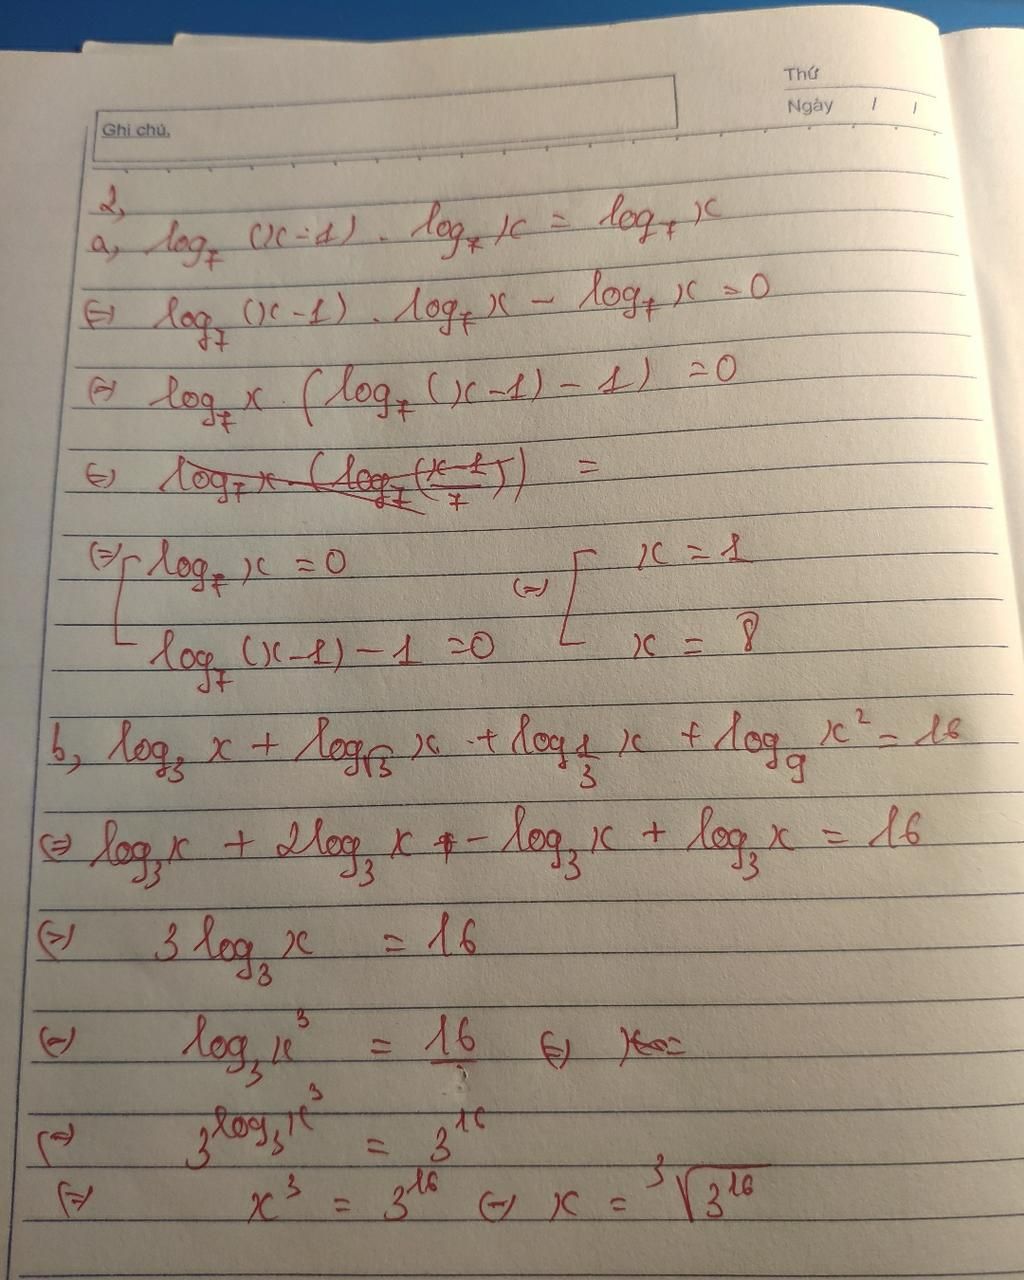 Thứ
Ngày / /
Ghi chú.
2,
a, log₇ (x-1) . log₇ x = log₇ x
(=) log₇ (x-1) . log₇ x - log₇ x = 0
(=) log₇ x . (log₇ (x-1) - 1) = 0
(=) log₇ x (log₇ (x-1)/7) =
(=) [ log₇ x = 0 (=) [ x = 1
log₇ (x-1) - 1 = 0 x = 8
b, log₃ x + log_√3 x + log_1/3 x + log₉ x² = 16
(=) log₃ x + 2log₃ x - log₃ x + log₃ x = 16
(=) 3 log₃ x = 16
(=) log₃ x³ = 16 (=) x =
(=) 3^log₃ x³ = 3¹⁶
(=) x³ = 3¹⁶ (=) x = ³√3¹⁶